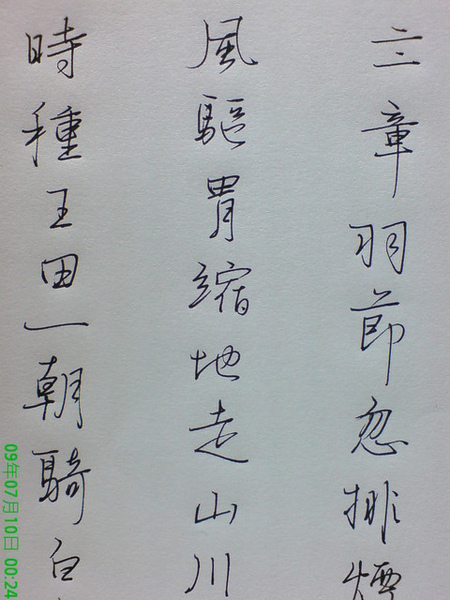 三章羽莭忽排煙
風驅胃縮地走山川
時種王田一朝騎白
09年07月10日 00:24